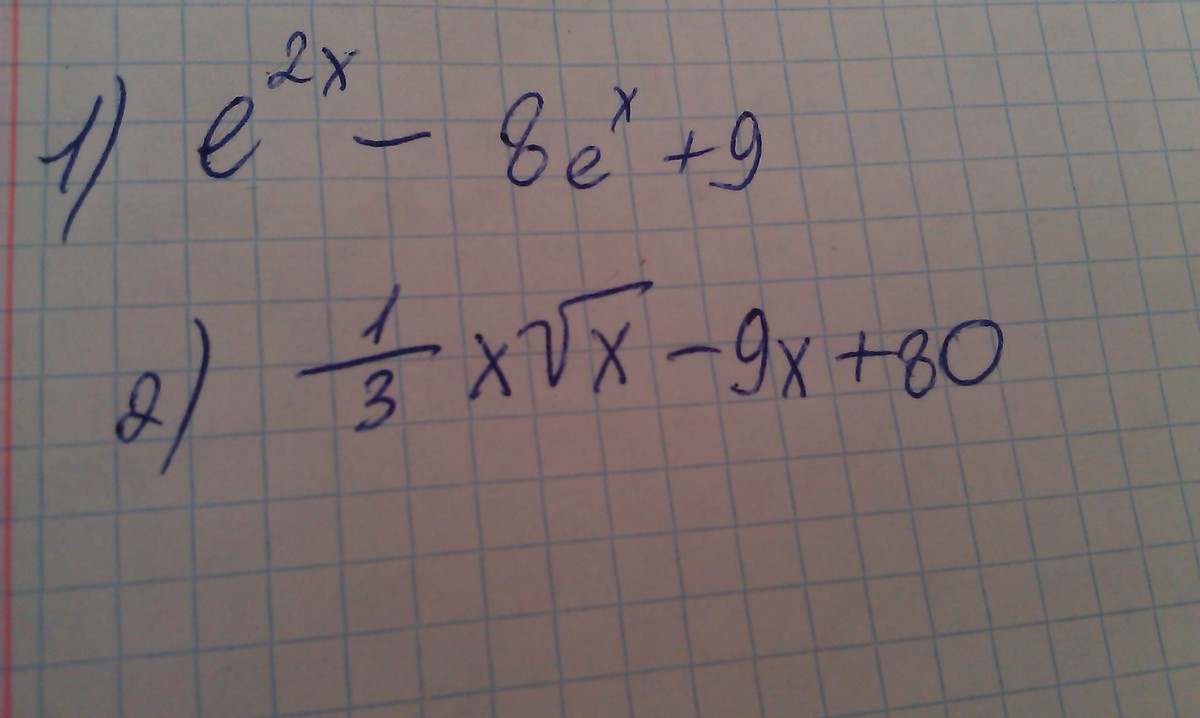 1) e^{2x} - 8e^x + 9
2) \frac{1}{3} x\sqrt{x} - 9x + 80